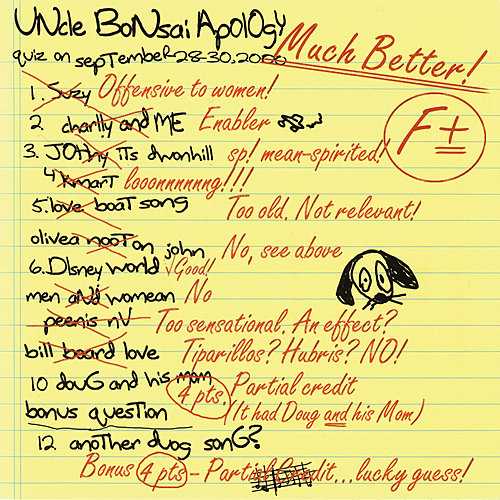 UNcle BoNsai ApolOgy
quiz on sepTembeR 28-30. 2000
Much Better!
1. Suzy Offensive to women!
2 charlly and ME Enabler
F±
3. JOHNy iTs dwonhill sp! mean-spirited!
4 Kmart looonnnnnng!!!
5. love boaT song Too old. Not relevant!
olivea nooTon john No, see above
6. DIsney world √Good!
men aNd womean No
peenis nV Too sensational. An effect?
bill board love Tiparillos? Hubris? NO!
10 douG and his mom Partial credit
4 pts.
bonus quesTion (It had Doug and his Mom)
12 anoTher duog sonG?
Bonus 4 pts - Partial Credit...lucky guess!